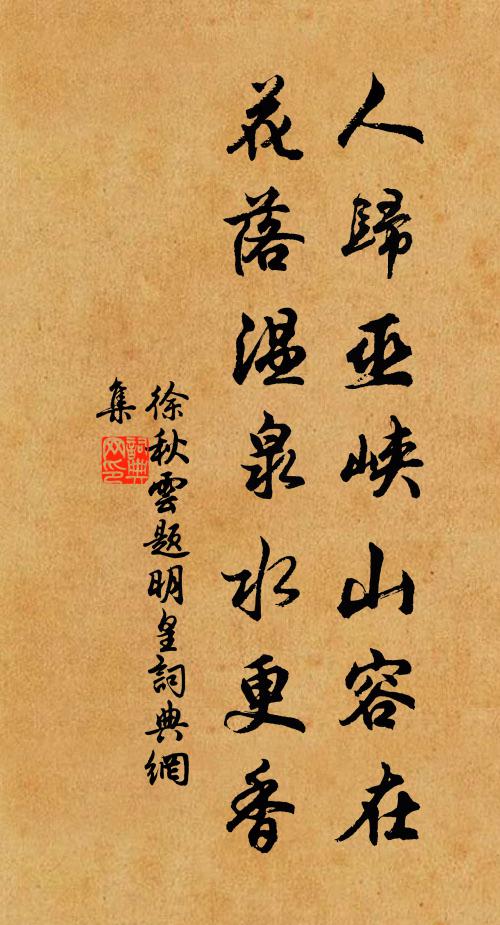 人歸巫峽山容在
花落温泉水更香
徐秋雲題明皇詞典網
集
詞典網印